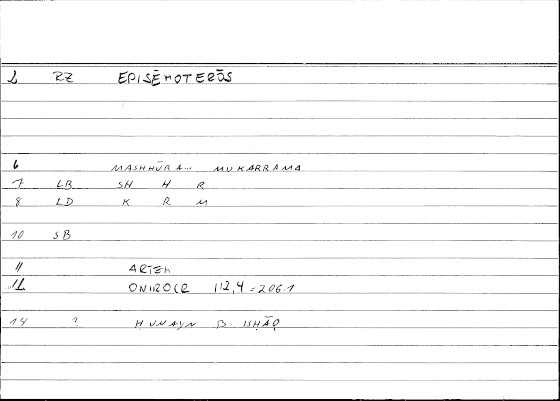 2 RZ EPISĒMOTERŌS
6 MASHHŪRA... MUKARRAMA
7 LB SH H R
8 LD K R M
10 SB
11 ARTEM
12 ONIROCR 112,4 = 206.1
14 ? HUNAYN B. ISḤĀQ